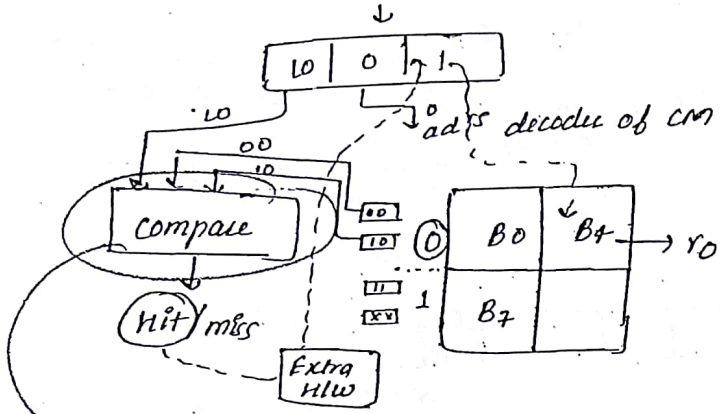 10 0 1
10
0
adrs decoder of CM
00
10
Compare
00
10
0 B0 B4 r0
11
1 B7
XX
Hit/miss
Extra
H/W